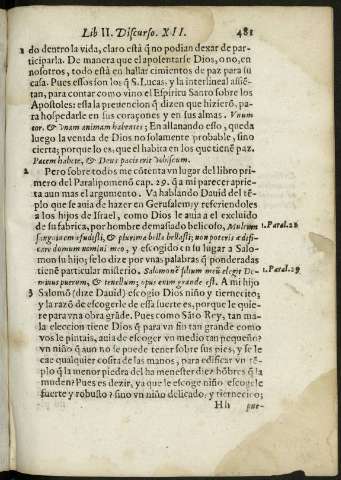 Lib II. Discurso. XII. 481
1 do dentro la vida, claro está q̃ no podian dexar de par-
ticiparla. De manera que el aposentarse Dios, o no, en
nosotros, todo está en hallar cimientos de paz para su
casa. Pues essos son los q̃ S. Lucas, y la interlineal assiẽ-
tan, para contar como vino el Espiritu Santo sobre los
Apostoles: essa la preuencion q̃ dizen que hizierõ, pa-
ra hospedarle en sus coraçones y en sus almas. Vnum
cor, & vnam animam habentes; En allanando esso, queda
luego la venida de Dios no solamente probable, sino
cierta; porque lo es, que el habita en los que tienẽ paz.
Pacem habete, & Deus pacis erit vobiscum.
2 Pero sobre todo me cõtenta vn lugar del libro pri-
mero del Paralipomenõ cap. 29. q̃ a mi parecer aprie-
ta aun mas el argumento. Va hablando Dauid del tẽ-
plo que se auia de hazer en Gerusalem; y refiriendoles
a los hijos de Israel, como Dios le auia a el excluido
de su fabrica, por hombre demasiado belicoso, Multum
sanguinem effudisti, & plurima bella bellasti; non poteris ædifi-
care domum nomini meo, y escogido en su lugar a Salo-
mon su hijo; se lo dize por vnas palabras q̃ ponderadas
tienẽ particular misterio. Salomonẽ filium meũ elegit Do-
minus puerum, & tenellum; opus enim grande est. A mi hijo
1. Paral. 28
1. Paral. 29
3 Salomõ (dize Dauid) escogio Dios niño y tiernecito;
y la razõ de escogerle de essa suerte es, porque le quie-
re para vna obra grãde. Pues como Sãto Rey, tan ma-
la eleccion tiene Dios q̃ para vn fin tan grande como
vos le pintais, auia de escoger vn medio tan pequeño?
vn niño q̃ aun no se puede tener sobre sus pies, y se le
cae qualquier cosita de las manos, para edificar vn tẽ-
plo q̃ la menor piedra del ha menester diez hõbres q̃ la
muden? Pues es dezir, ya que le escoge niño escogele
fuerte y robusto? sino vn niño delicado, y tiernecico;
Hh pue-